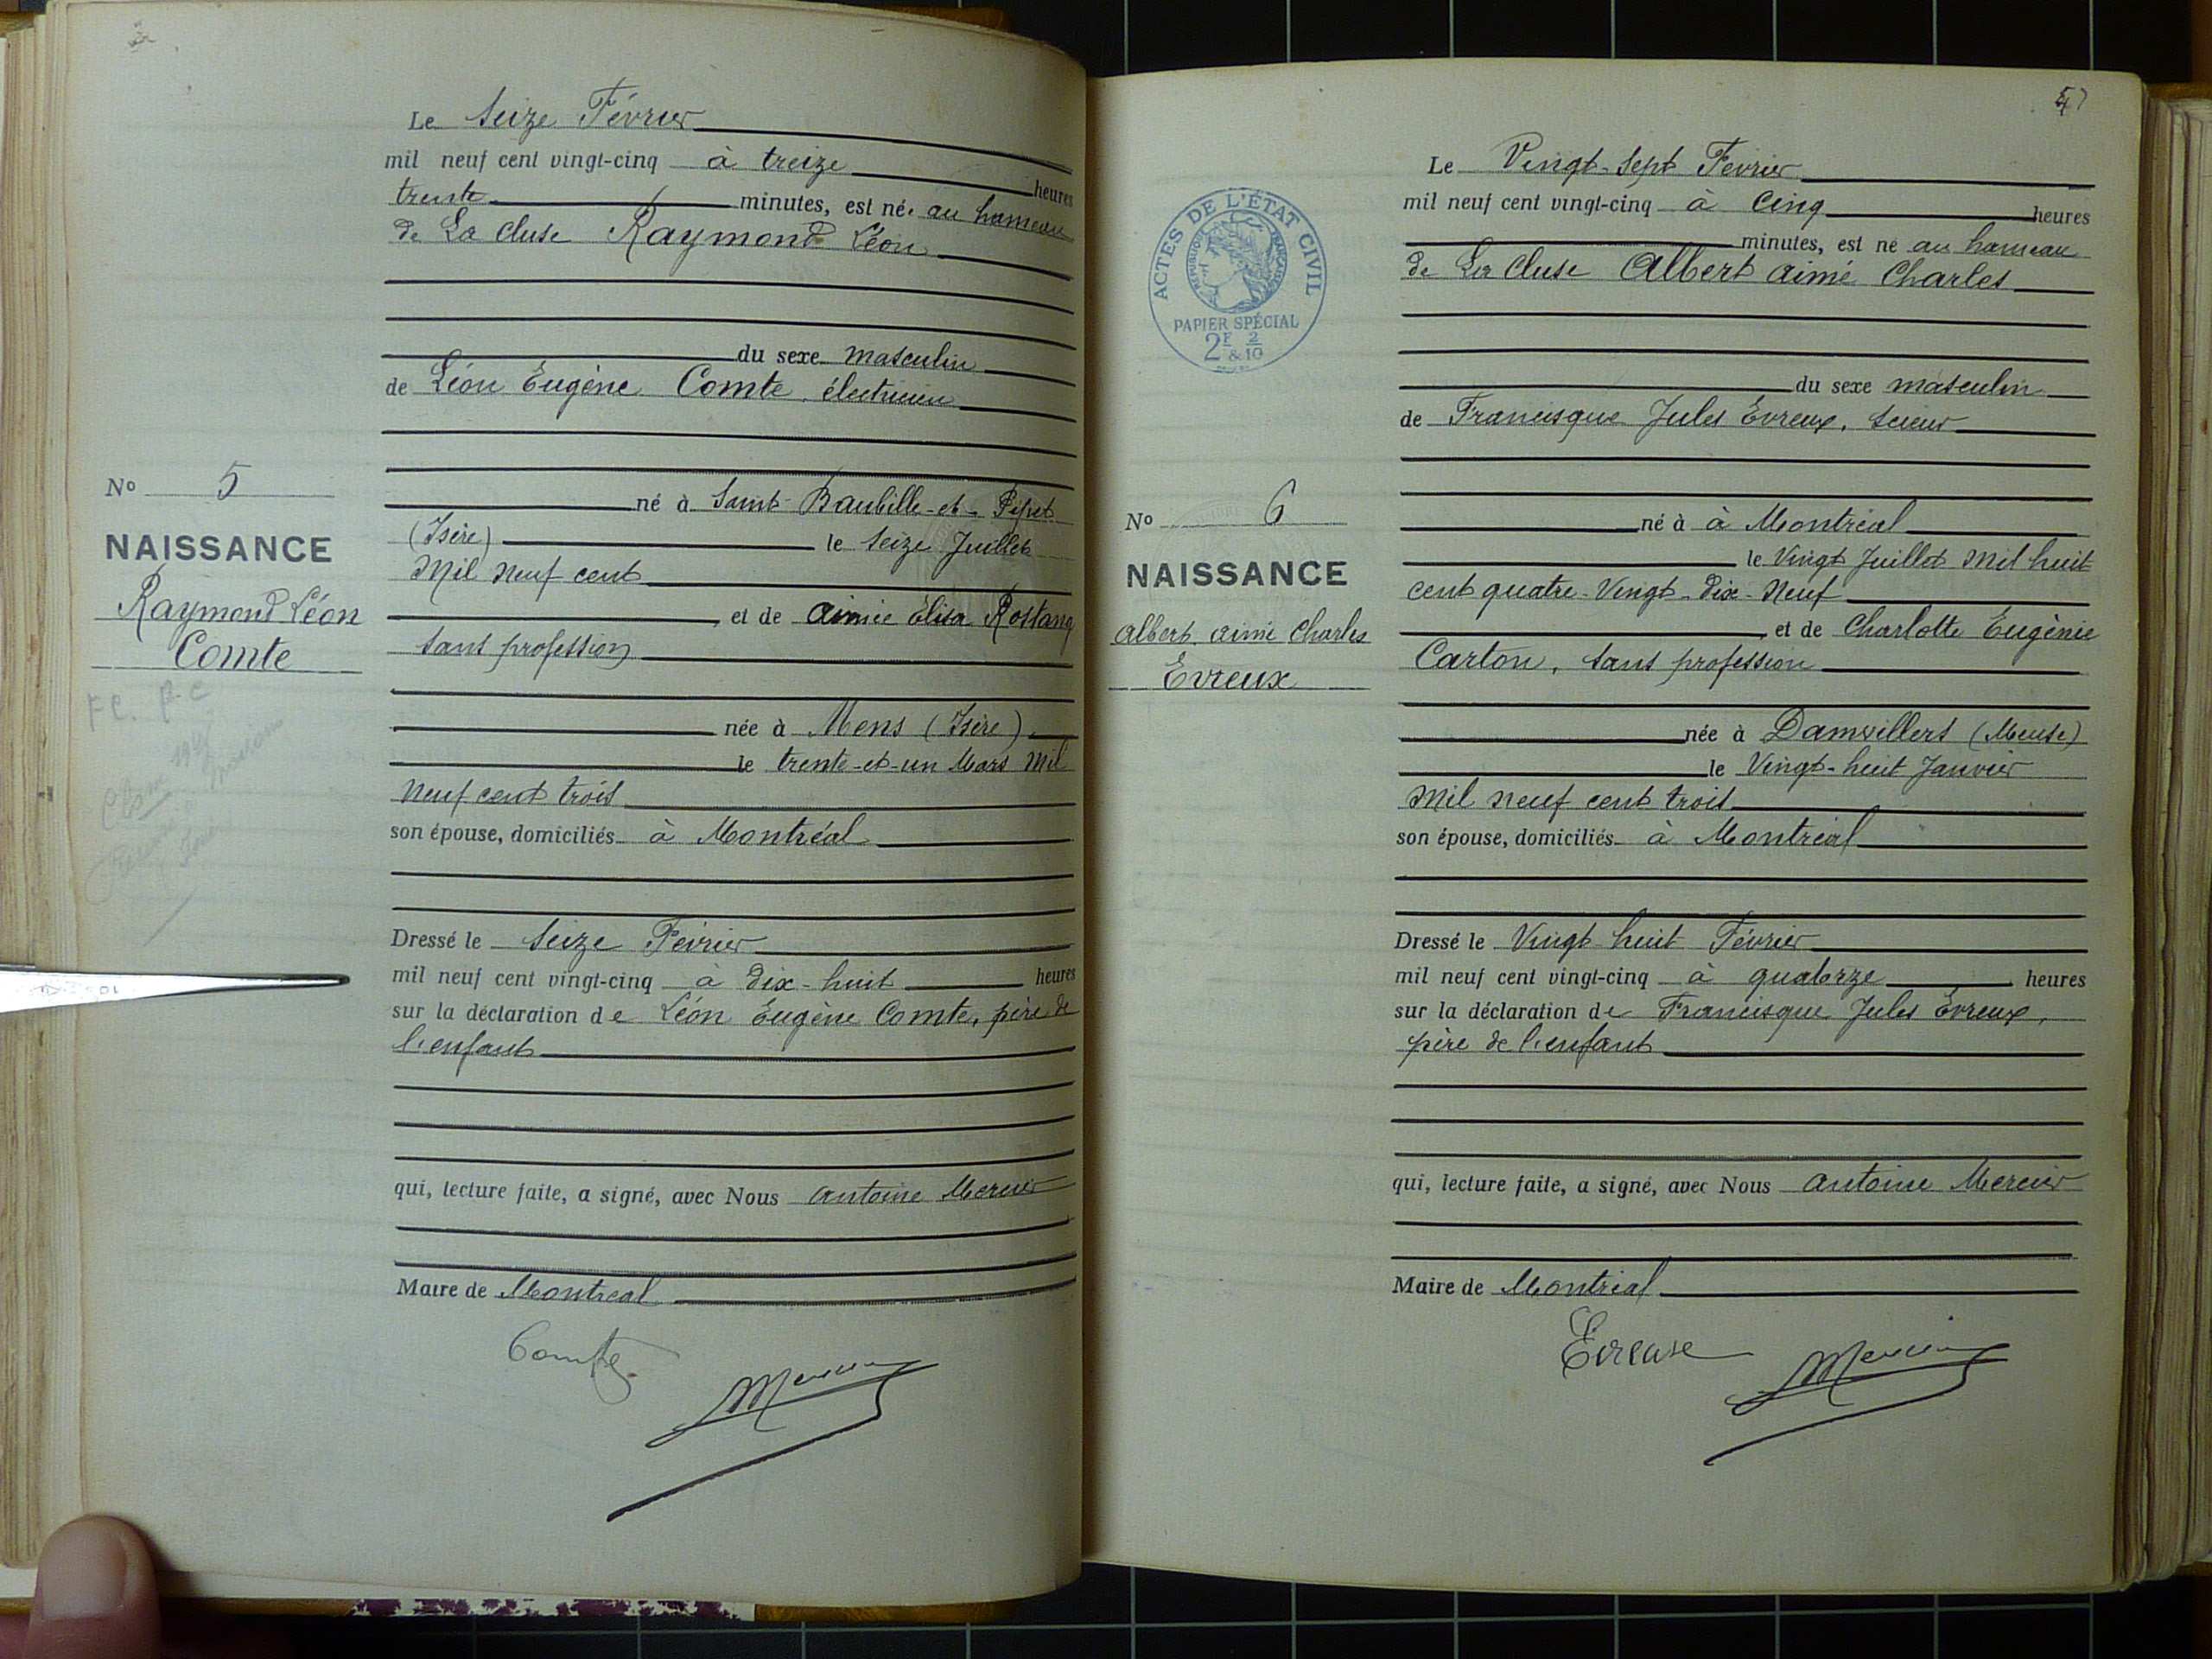 Le Seize Février
mil neuf cent vingt-cinq à treize heures
trente minutes, est né au hameau
de La Cluse Raymond Léon
du sexe masculin
de Léon Eugène Comte, électricien
né à Saint-Baudille-et-Pipet
(Isère) le seize Juillet
Mil neuf cent
et de Aimée Élisa Rostang
sans profession
née à Mens (Isère)
le trente-et-un Mars Mil
neuf cent trois
son épouse, domiciliés à Montréal
Dressé le Seize Février
mil neuf cent vingt-cinq à Dix-huit heures
sur la déclaration de Léon Eugène Comte, père de
l'enfant
qui, lecture faite, a signé, avec Nous Antoine Mercier
Maire de Montréal
Comte
Mercier
No 5
NAISSANCE
Raymond Léon
Comte
47
Le Vingt-Sept Février
mil neuf cent vingt-cinq à Cinq heures
minutes, est né au hameau
de La Cluse Albert Aimé Charles
du sexe masculin
de Francisque Jules Évreux, scieur
né à à Montréal
le Vingt Juillet Mil huit
cent quatre-Vingt-Dix-Neuf
et de Charlotte Eugénie
Carton, sans profession
née à Damvillers (Meuse)
le Vingt-huit Janvier
Mil neuf cent trois
son épouse, domiciliés à Montréal
Dressé le Vingt-huit Février
mil neuf cent vingt-cinq à quatorze heures
sur la déclaration de Francisque Jules Évreux,
père de l'enfant
qui, lecture faite, a signé, avec Nous Antoine Mercier
Maire de Montréal
Evreux
Mercier
ACTES DE L'ÉTAT CIVIL
RÉPUBLIQUE FRANÇAISE
PAPIER SPÉCIAL
2F & 2/10
No 6
NAISSANCE
Albert Aimé Charles
Évreux